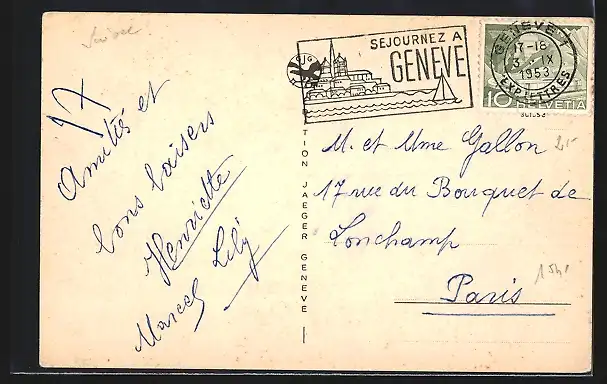 Suisse
SEJOURNEZ A
GENEVE
GENEVE 1
17-18
3 IX
1953
EXP. LETTRES
10 HELVETIA
SUISSE
17
Amitiés et
bons baisers
Henriette
Lily
Marcel
TION JAEGER GENEVE
M. et Mme Gallon
17 rue du Bouquet de
Lonchamp
Paris